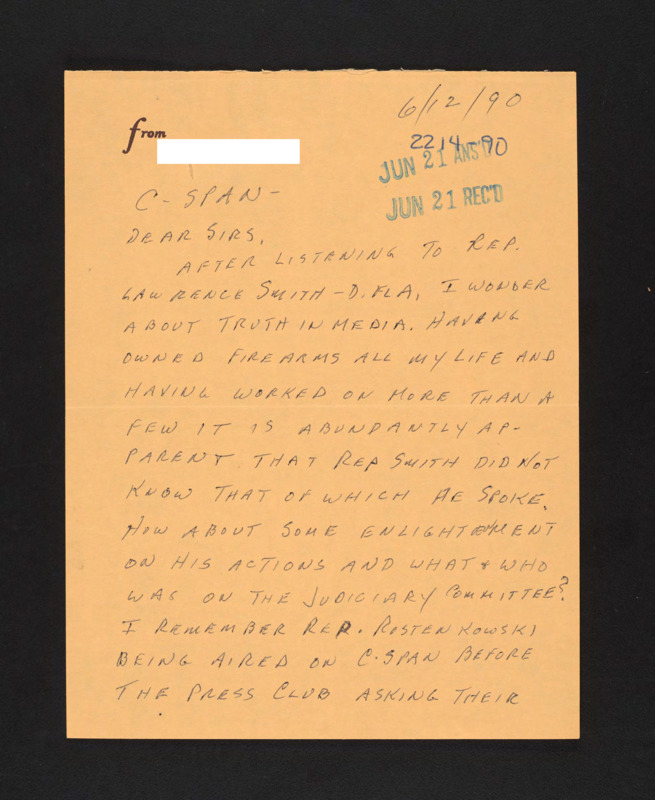 6/12/90
from
2214-90
JUN 21 ANS'D
JUN 21 REC'D
C-SPAN-
DEAR SIRS,
AFTER LISTENING TO REP.
LAWRENCE SMITH-D.FLA, I WONDER
ABOUT TRUTH IN MEDIA. HAVING
OWNED FIREARMS ALL MY LIFE AND
HAVING WORKED ON MORE THAN A
FEW IT IS ABUNDANTLY AP-
PARENT THAT REP SMITH DID NOT
KNOW THAT OF WHICH HE SPOKE.
HOW ABOUT SOME ENLIGHTENMENT
ON HIS ACTIONS AND WHAT & WHO
WAS ON THE JUDICIARY COMMITTEE?
I REMEMBER REP. ROSTENKOWSKI
BEING AIRED ON C-SPAN BEFORE
THE PRESS CLUB ASKING THEIR